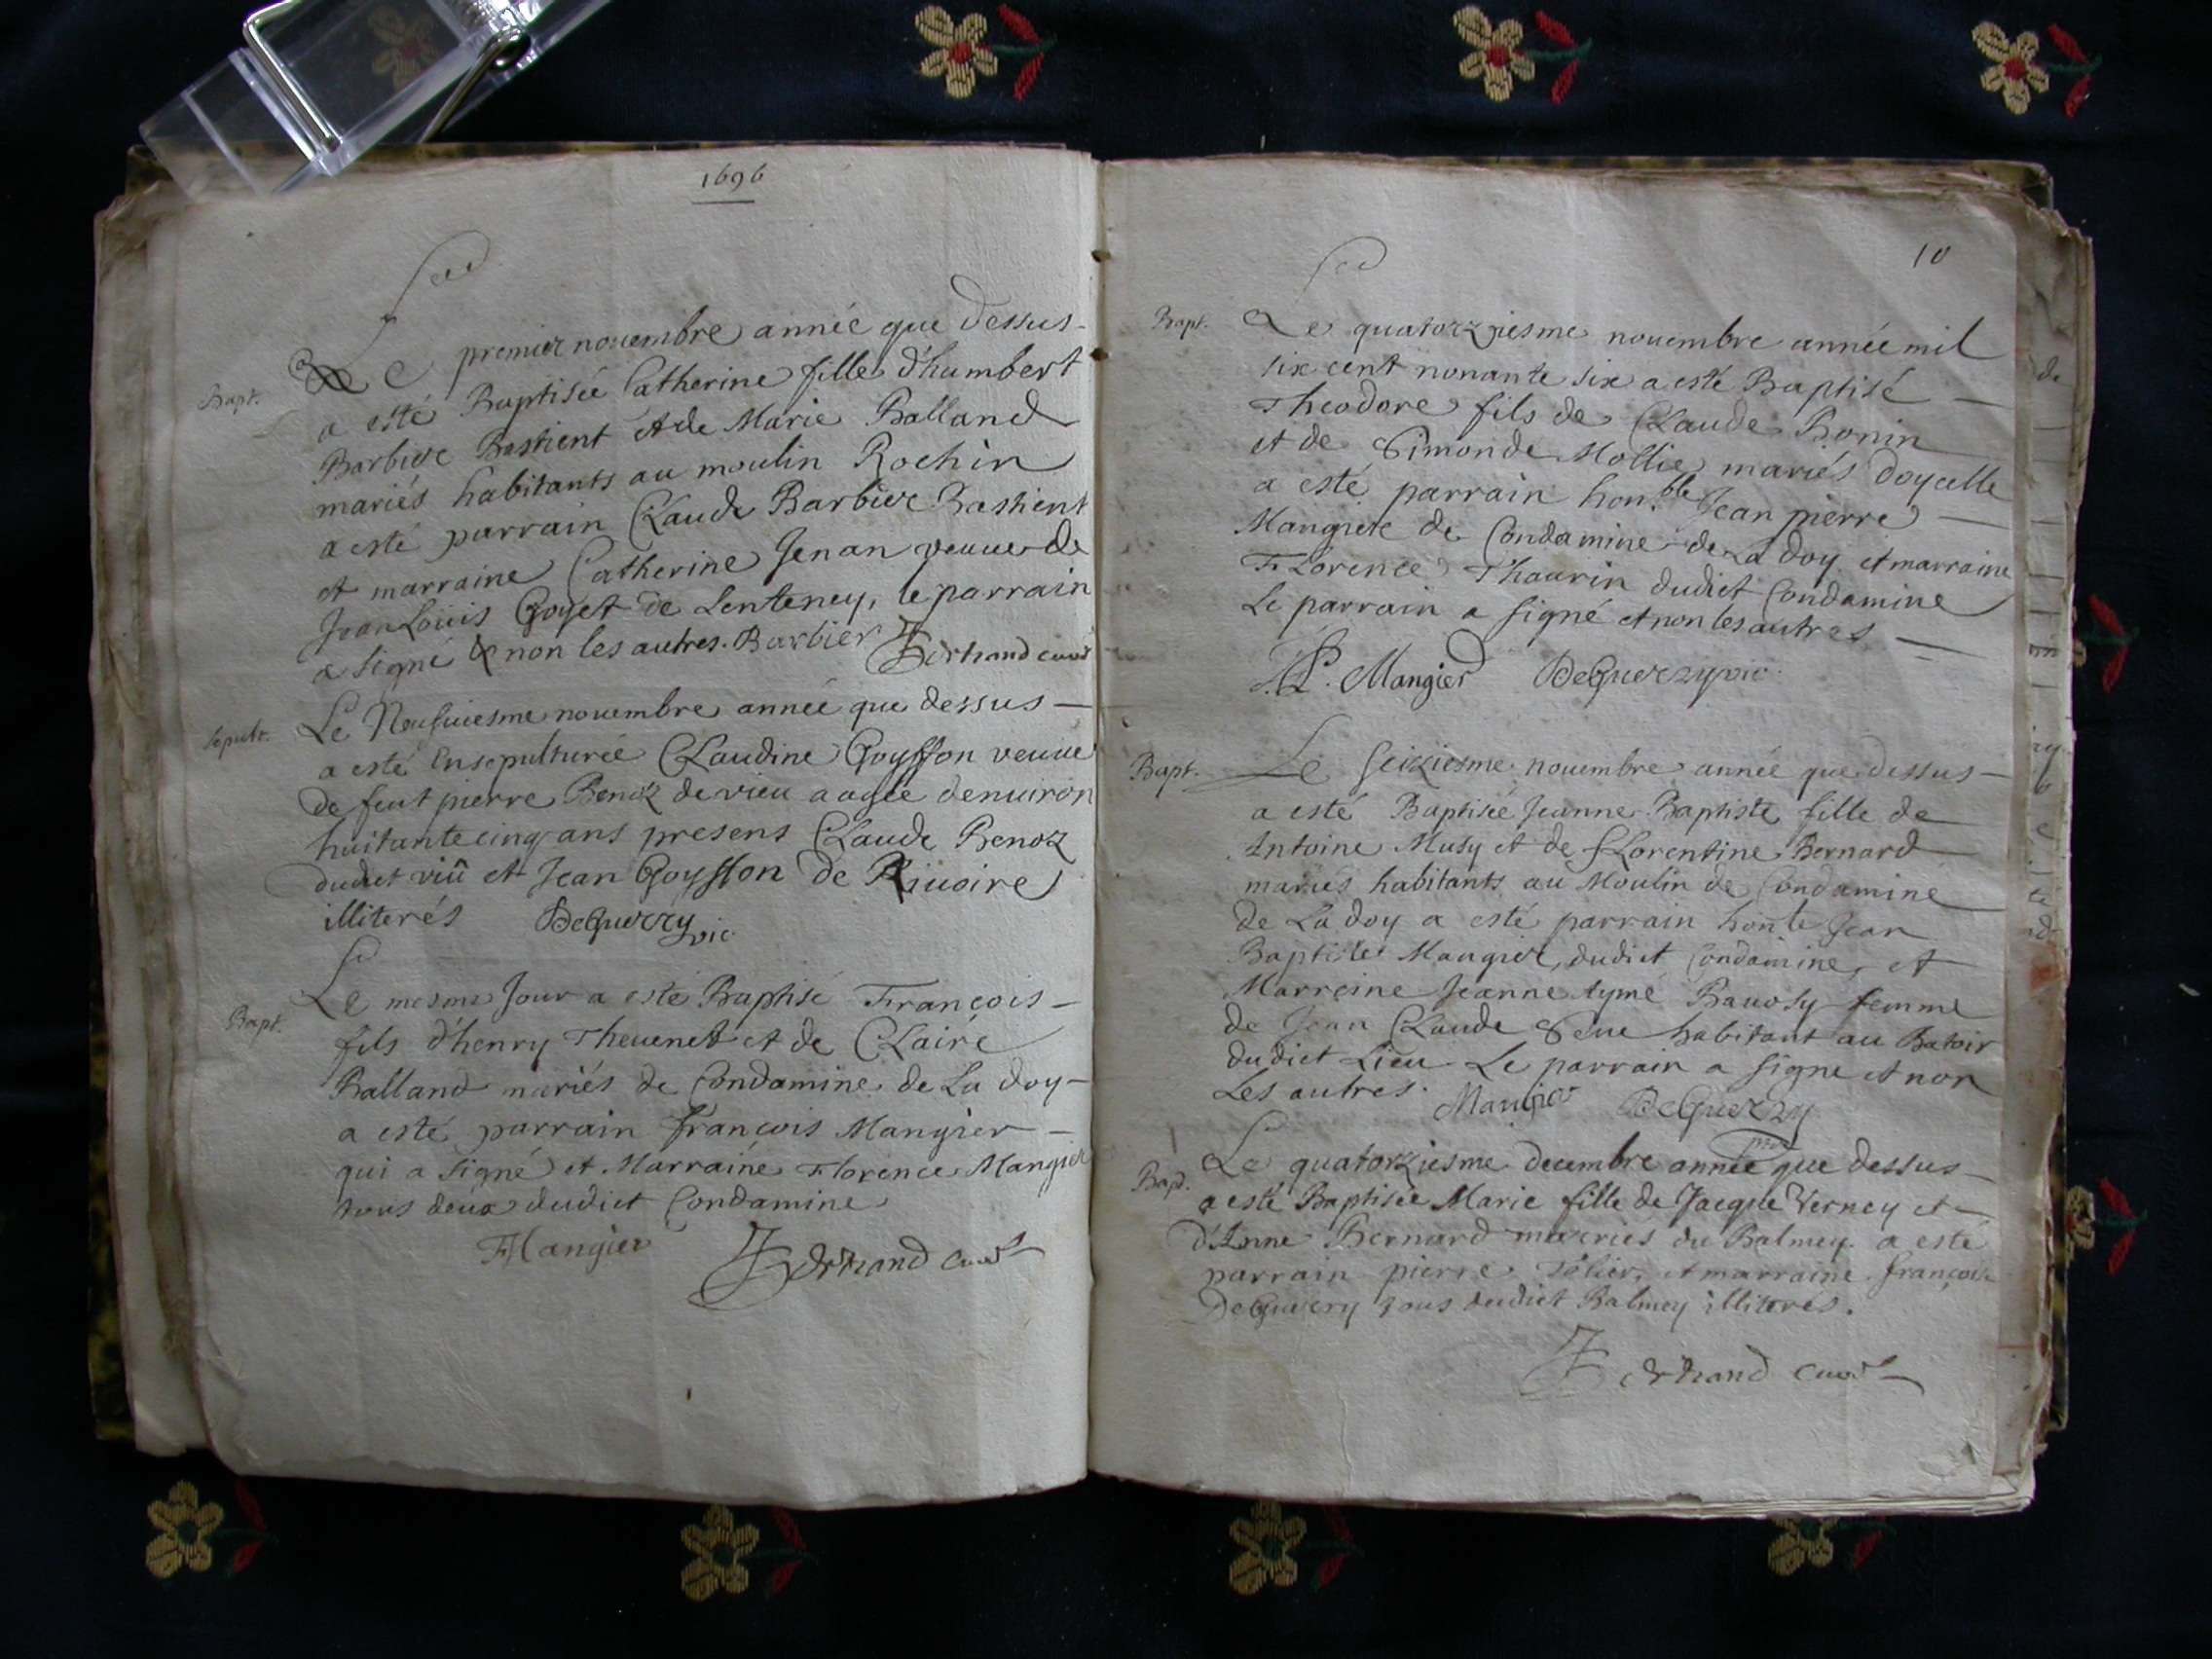 1696
Bapt.
Le premier nouembre année que dessus
a esté Baptisée Catherine fille d'humbert
Barbier Bastient et de Marie Balland
mariés habitants au moulin Rochin
a esté parrain Claude Barbier Bastient
et marraine Catherine Jenan veuue de
Jean Loüis Goyet de Lenteney, le parrain
a signé & non les autres. Barbier Bertrand curé
Sepult.
Le Neufuiesme nouembre année que dessus
a esté Ensepulturée Claudine Goyffon veuue
de feut pierre Benoz de vieu aagée denuiron
huitante cinq ans presens Claude Benoz
dudict viû et Jean Goyffon de Riuoire
illiterés DeGuerry vic.
Bapt.
Le mesme Jour a esté Baptisé François
fils d'henry Theuenet et de Claire
Balland mariés de Condamine de La doy
a esté parrain françois Mangier
qui a signé et Marraine Florence Mangier
tous deux dudict Condamine
F Mangier Bertrand curé
10
Bapt.
Le quatorziesme nouembre année mil
six cent nonante six a esté Baptisé
Theodore fils de Claude Bonin
et de Simonde Mollie mariés doycelle
a esté parrain hon.ble Jean pierre
Mangier de Condamine de La doy et marraine
Florence Thaurin dudict Condamine
Le parrain a signé et non les autres
J.P. Mangier DeGuerry vic.
Bapt.
Le Seiziesme nouembre année que dessus
a esté Baptisée Jeanne Baptiste fille de
Antoine Musy et de florentine Bernard
mariés habitants au Moulin de Condamine
de La doy a esté parrain honle Jean
Baptiste Mangier, dudict Condamine, et
Marreine Jeanne aymé Bauosy femme
de Jean Claude Seue habitant au Batoir
dudict Lieu Le parrain a signe et non
Les autres. Mangier DeGuerry
Bapt.
Le quatorziesme decembre année que dessus
a esté Baptisée Marie fille de Jacque Verney et
d'Anne Bernard mariés du Balmey a esté
parrain pierre et marraine françoise
DeGuerry tous dudict Balmey illiterés.
Bertrand curé